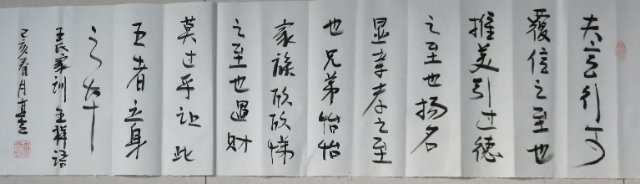 夫言行可
覆信之至也
推美引过德
之至也扬名
显亲孝之至
也兄弟怡怡
家族欣欣悌
之至也临财
莫过乎让此
五者立身
之本
王氏家训王祥语
己亥春月